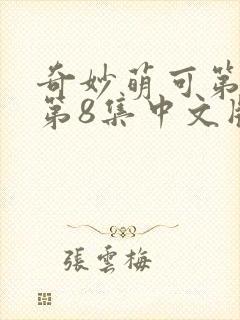 奇妙萌可第
第8集中文版
張雲梅